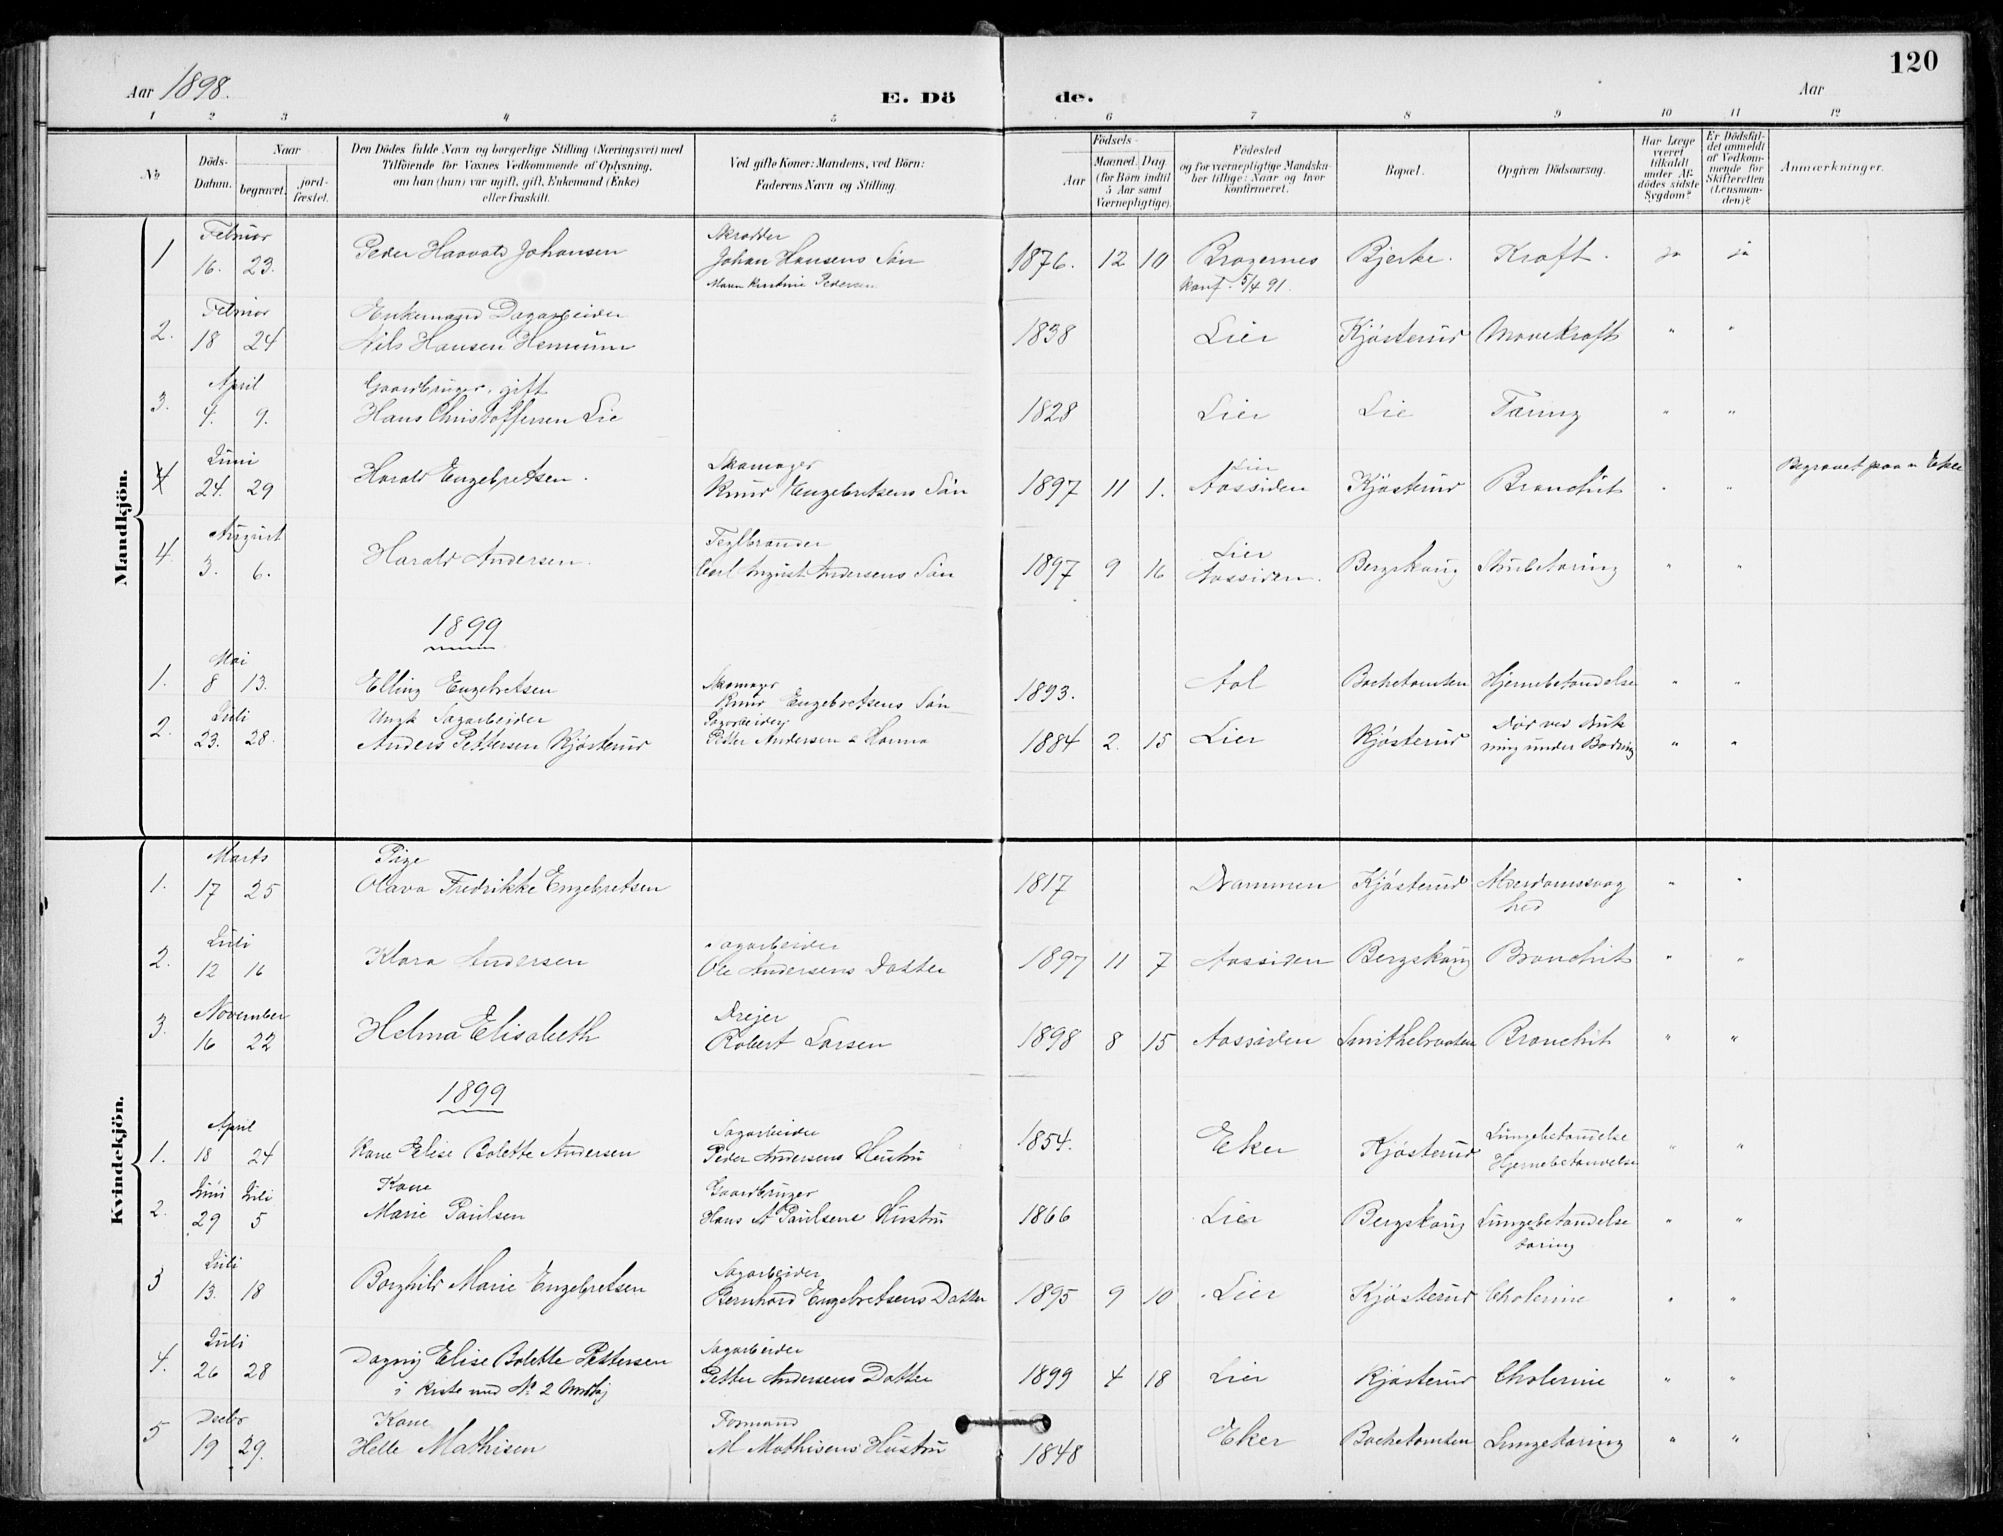 120
Aar 1898.
E. Dö
de.
Aar
1 2 3 4 5 6 7 8 9 10 11 12
No
Döds-Datum.
Naar
begravet.
jord-fæstet.
Den Dödes fulde Navn og borgerlige Stilling (Næringsvei) med
Tilföiende for Voxnes Vedkommende af Oplysning,
om han (hun) var ugift, gift, Enkemand (Enke)
eller fraskilt.
Ved gifte Koner: Mandens, ved Börn:
Faderens Navn og Stilling.
Födsels-
Aar
Maaned. Dag
(for Börn indtil
5 Aar samt
Værnepligtige).
Födested
og for værnepligtige Mandska-
ber tillige: Naar og hvor
konfirmeret.
Bopæl.
Opgiven Dödsaarsag.
Har Læge
været
tilkaldt
under Af-
dödes sidste
Sygdom?
Er Dödsfal-
det anmeldt
af Vedkom-
mende for
Skifteretten
(Lensman-
den)?
Anmærkninger.
Mandkjön.
Februar Skrædder
1 16. 23. Peder Haavald Johansen Johan Hansens Sön 1876. 12 10 Bragernes Bjerke. Kræft. ja ja
Maren Kristine Pedersen konf. 5/4 91.
Februar Enkemand Dagarbeider
2. 18 24 Nils Hansen 1838 Lier Kjøsterud Mavekræft " "
April Gaardbruger, gift
3. 4. 9. Hans Christoffersen Lie 1828 Lier Lie Tæring " "
Juni Skomager Lier Begravet paa Eker
4 24. 29 Harald Engebretsen. Knud Engebretsens Sön 1897 11 1. Aassiden Kjøsterud Bronchit " "
August Teglbrænder Lier
4. 3. 6. Harald Andersen. Carl August Andersens Sön 1897 9 16 Aassiden. Bergskaug Strubetæring " "
1899
Mai Skomager
1. 8 13. Elling Engebretsen Knud Engebretsens Sön 1893. Aal Bachetomten Hjernebetændelse " "
Juli Ungk Sagarbeider Sagarbeider Død ved Druk
2. 23. 28. Anders Pettersen Kjøsterud Petter Andersen & Hanna 1884 2. 15 Lier Kjøsterud ning under Badning " "
Kvindekjön.
Marts Pige
1. 17 25 Olava Fredrikke Engebretsen 1817 Drammen Kjøsterud Alderdomssvag " "
hed
Juli Sagarbeider
2. 12 16 Klara Andersen Ole Andersens Datter 1897 11 7 Aassiden Bergskaug Bronchit " "
November Drejer
3. 16 22 Helma Elisabeth Robert Larsen 1898 8 15 Aassiden Smithebraaten Bronchit " "
1899
April Sagarbeider Lungebetændelse
1. 18 24 Kone Elise Bolette Andersen Peder Andersens Hustru 1854. Eker Kjøsterud Hjernebetændelse " "
Juni Juli Kone Gaardbruger
2. 29 5 Marie Paulsen Hans A Paulsens Hustru 1866 Lier Bergskaug Lungebetændelse " "
tæring
Juli Sagarbeider
3 13. 18 Borghild Marie Engebretsen Bernhard Engebretsens Datter 1895 9 10 Lier Kjøsterud Cholerine " "
Juli Sagarbeider
4. 26 28 Dagny Elise Bolette Pettersen Petter Andersens Datter 1899 4 18 Lier Kjøsterud Cholerine " "
i kiste med No 2
Decbr Kone Formand
5 19 29. Helle Mathisen M Mathisens Hustru 1848 Eker Bachetomten Lungetæring " "